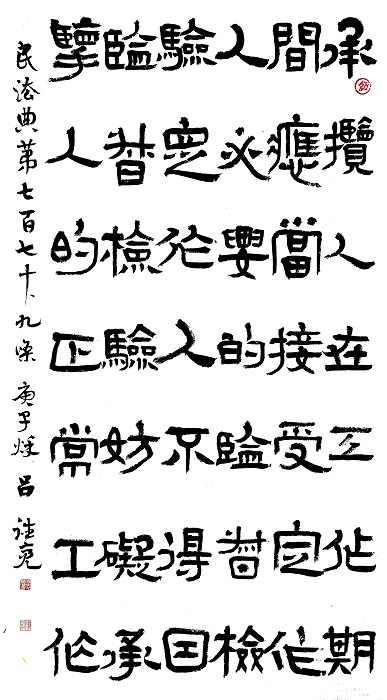 承攬人在工作期
間應當接受定作
人必要的監督檢
驗定作人不得因
監督檢驗妨礙承
攬人的正常工作
民法典第七百七十九條 庚子秋 呂